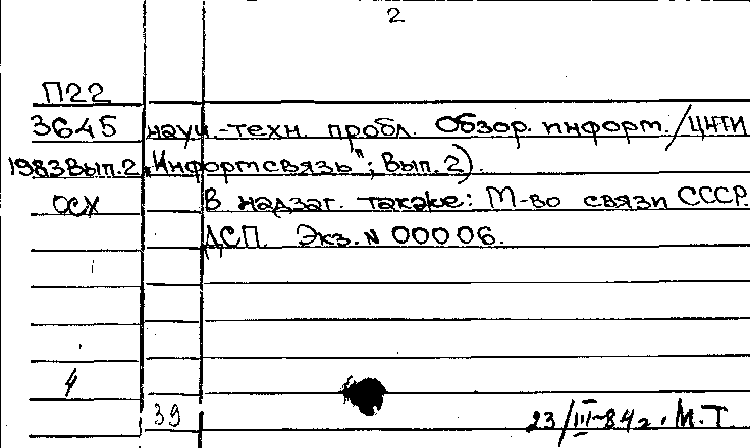 2
П22
3645 научн.-техн. пробл. Обзор. информ./ЦНТИ
1983Вып.2 „Информсвязь"; Вып. 2).
осх В надзаг. также: М-во связи СССР.
ДСП. Экз. N 00006.
4
39 23/III-84г. М.Т